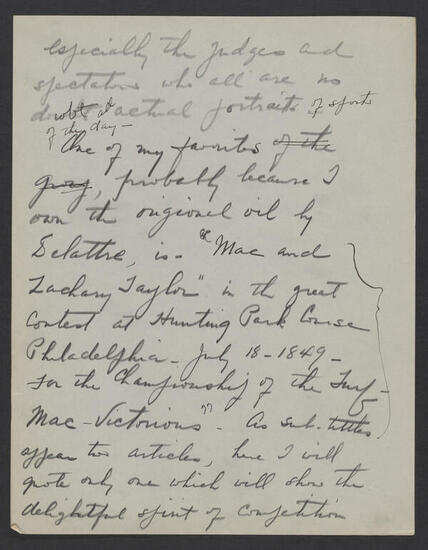 especially the judges and
spectators who all are no
doubt all actual portraits of sports
of the day —
One of my favorites of the
group, probably because I
own the origional oil by
Delattre, is - "Mac and
Zachary Taylor" in the great
Contest at Hunting Park Course
Philadelphia - July 18 - 1849 -
For the Championship of the Turf -
Mac - Victorious" - As sub-titles
appear two articles, here I will
quote only one which will show the
delightful spirit of competition